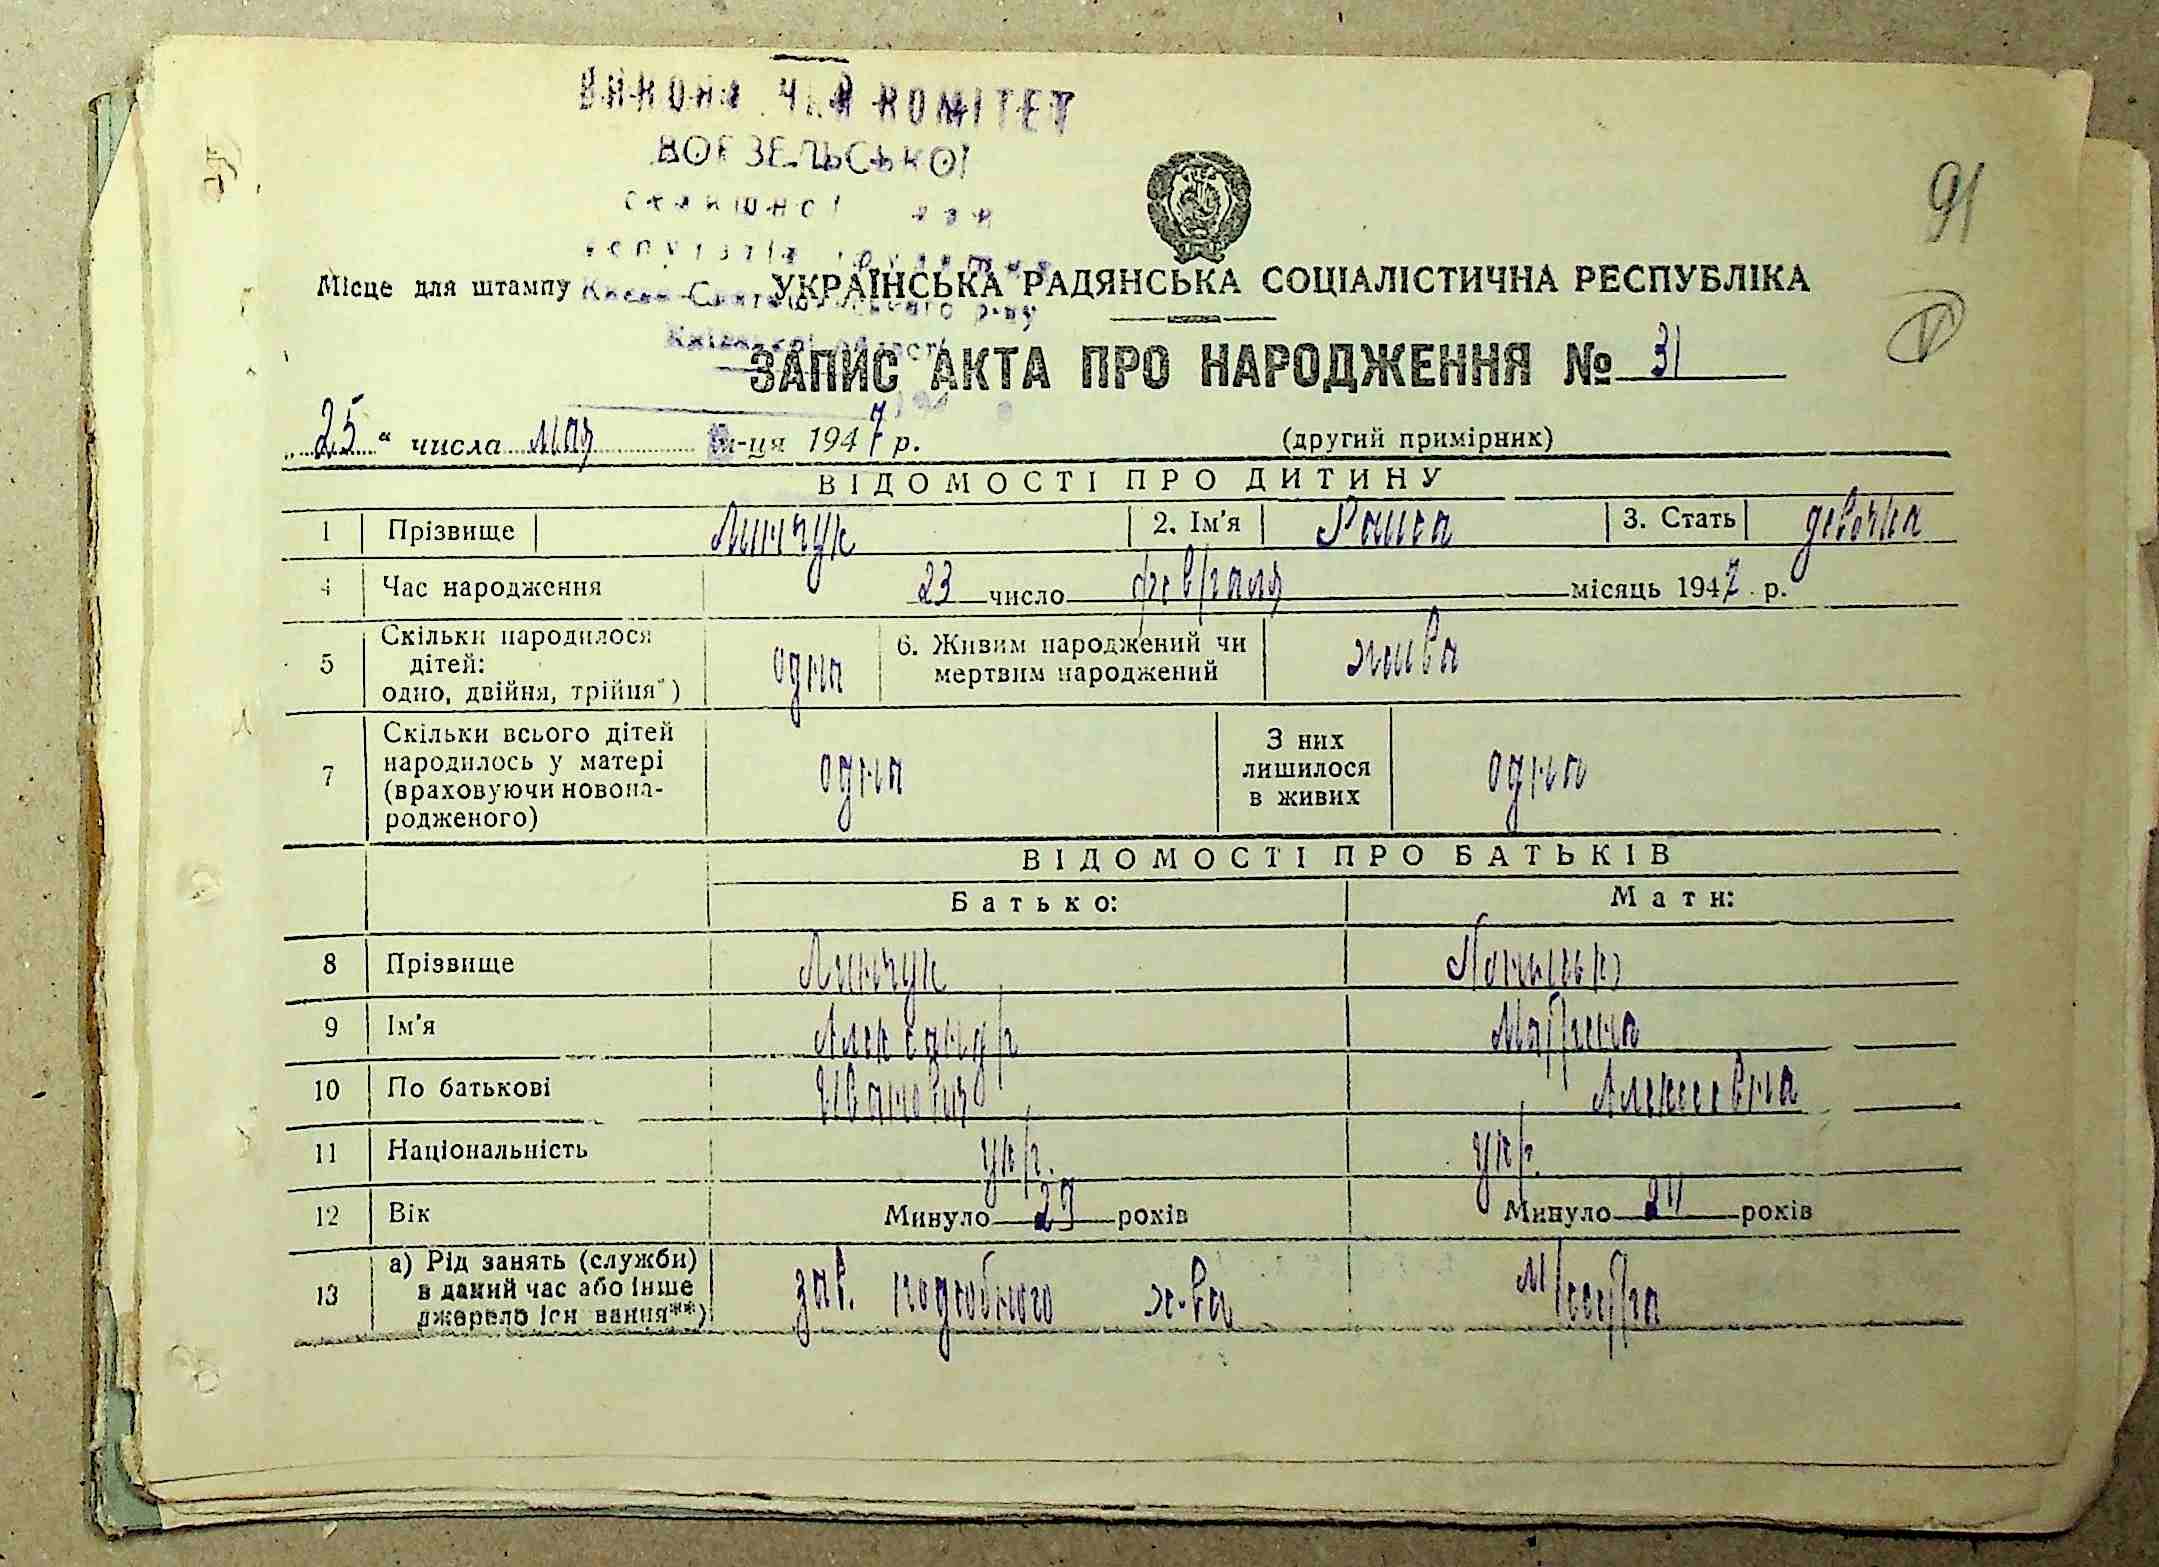 ВИКОНАВЧИЙ КОМІТЕТ
ВОРЗЕЛЬСЬКОЇ
селищної ради
депутатів трудящих
91
Місце для штампу
Києво-Святошинського р-ну
УКРАЇНСЬКА РАДЯНСЬКА СОЦІАЛІСТИЧНА РЕСПУБЛІКА
Київської області
ЗАПИС АКТА ПРО НАРОДЖЕННЯ № 31
„25“ числа мая м-ця 1947 р. (другий примірник)
ВІДОМОСТІ ПРО ДИТИНУ
1 Прізвище Линчук 2. Ім'я Раиса 3. Стать девочка
4 Час народження 23 число февраля місяць 1947 р.
5 Скільки народилося дітей: одно, двійня, трійня*) одна 6. Живим народжений чи мертвим народжений жива
7 Скільки всього дітей народилось у матері (враховуючи новона-родженого) одна З них лишилося в живих одна
ВІДОМОСТІ ПРО БАТЬКІВ
Батько: Мати:
8 Прізвище Линчук
9 Ім'я Александр
10 По батькові Иванович Алексеевна
11 Національність укр. укр.
12 Вік Минуло 29 років Минуло років
13 а) Рід занять (служби) в даний час або інше джерело існування**) зав. подсобного х-ва